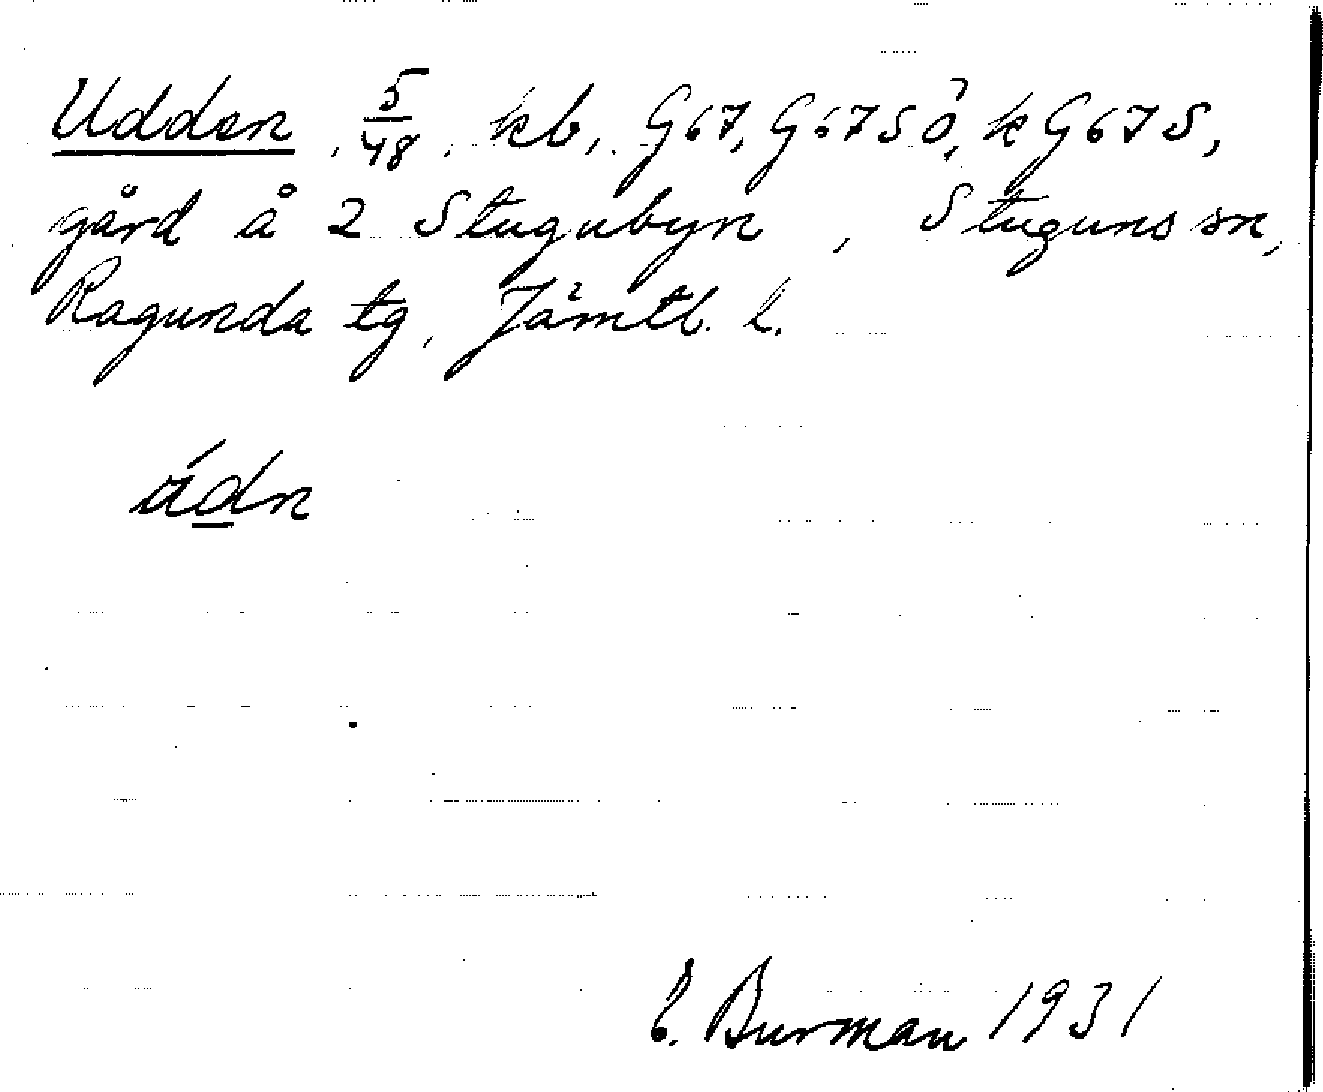 Udden, 5/48, kb, G67, G67SÖ, kG67S,
gård å 2 Stugubyn, Stuguns sn,
Ragunda tg, Jämtl. l.
údn
E. Burman 1931